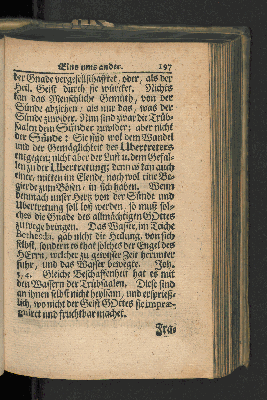 Eins ums ander. 197
der Gnade vergesellschafftet, oder, als der
Heil. Geist durch sie würcket. Nichts
kan das Menschliche Gemüth, von der
Sünde abziehen, als nur das, was der
Sünde zuwider. Nun sind zwar die Trüb-
salen dem Sünder zuwider; aber nicht
der Sünde: Sie sind wol dem Wandel
und der Gemächligkeit des Ubertreters
entgegen; nicht aber der Lust u. dem Gefal-
len zu der Ubertretung; denn es kan auch
einer, mitten im Elende, noch wol eine Be-
gierde zum Bösen, in sich haben. Wenn
demnach unser Hertz von der Sünde und
Ubertretung soll los werden, so muß sol-
ches die Gnade des allmächtigen GOttes
zuwege bringen. Das Wasser, im Teiche
Bethesda, gab nicht die Heilung, von sich
selbst, sondern es that solches der Engel des
HErrn, welcher zu gewisser Zeit herunter
fuhr, und das Wasser bewegte. Joh.
5, 4. Gleiche Beschaffenheit hat es mit
den Wassern der Trübsalen. Diese sind
an ihnen selbst nicht heylsam, und ersprieß-
lich, wo nicht der Geist GOttes sie impræ-
gniret und fruchtbar machet.
Tra-